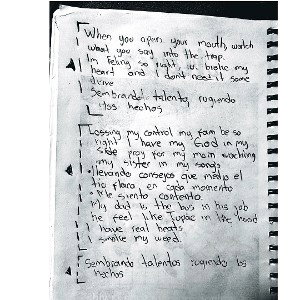 When you open your mouth, watch
what you say into the trap.
Im feling so right, u broke my
heart and I don't need it some
drive
Sembrando talento, rugiendo
los hechos
Lossing my control my fam be so
right I have my God in my
side pray for my mom waching
my sister in my songs
llevando consejos que medio el
tio flaro, en cada momento
me siento contento.
My dad is the bus in his job
he feel like Tupac in the hood
I have real heats
I smoke my weed.
Sembrando talentos rugiendo los
hechos